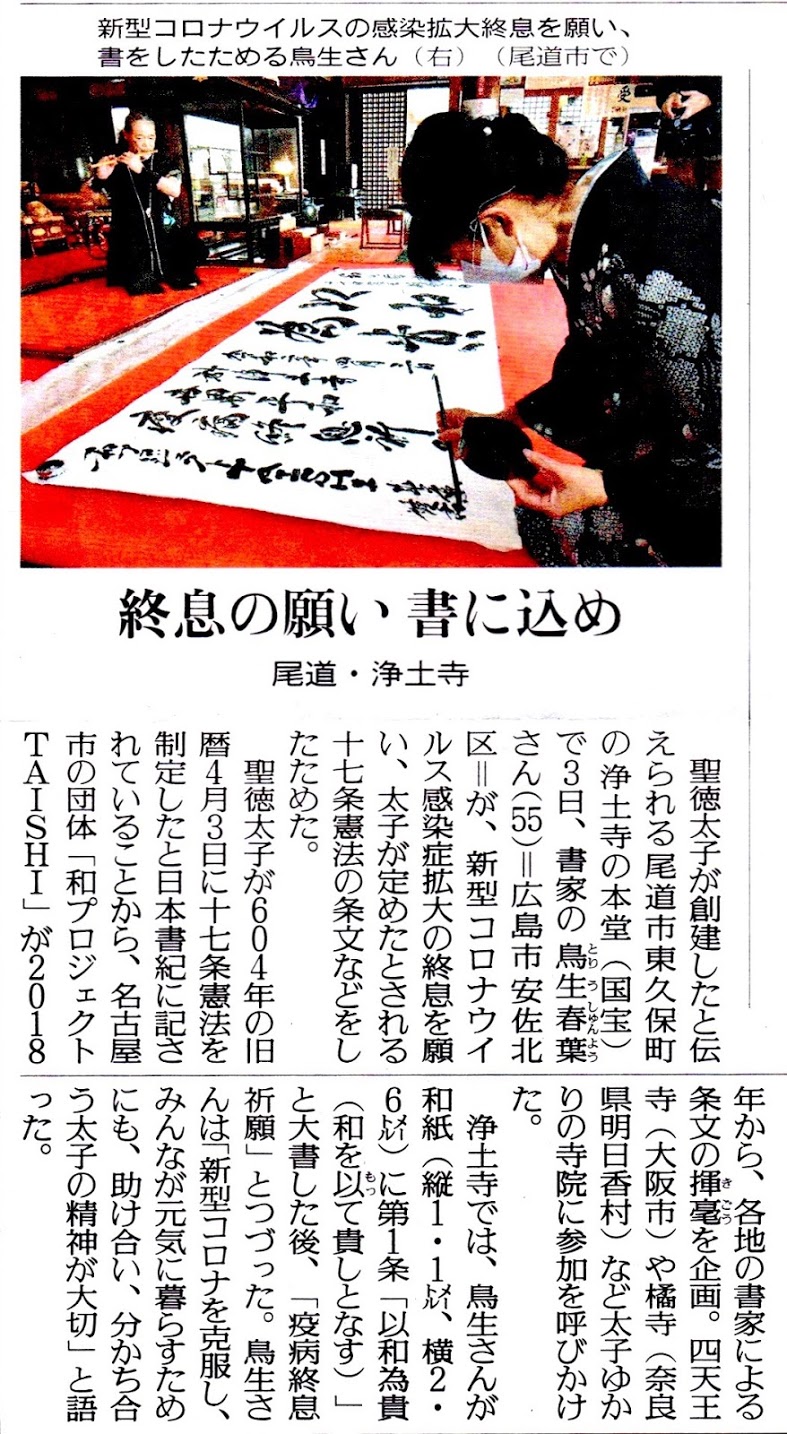 新型コロナウイルスの感染拡大終息を願い、
書をしたためる鳥生さん（右）（尾道市で）
愛
終息の願い 書に込め
尾道・浄土寺
聖徳太子が創建したと伝
えられる尾道市東久保町
の浄土寺の本堂（国宝）
で3日、書家の鳥生春葉
とりうしゅんよう
さん（55）＝広島市安佐北
区＝が、新型コロナウイ
ルス感染症拡大の終息を願
い、太子が定めたとされる
十七条憲法の条文などをし
たためた。
聖徳太子が604年の旧
暦4月3日に十七条憲法を
制定したと日本書紀に記さ
れていることから、名古屋
市の団体「和プロジェクト
TAISHI」が2018
年から、各地の書家による
条文の揮毫を企画。四天王
きごう
寺（大阪市）や橘寺（奈良
県明日香村）など太子ゆか
りの寺院に参加を呼びかけ
た。
浄土寺では、鳥生さんが
和紙（縦1・1㍍、横2・
6㍍）に第1条「以和為貴
（和を以て貴しとなす）」
もっ
と大書した後、「疫病終息
祈願」とつづった。鳥生さ
んは「新型コロナを克服し、
みんなが元気に暮らすため
にも、助け合い、分かち合
う太子の精神が大切」と語
った。